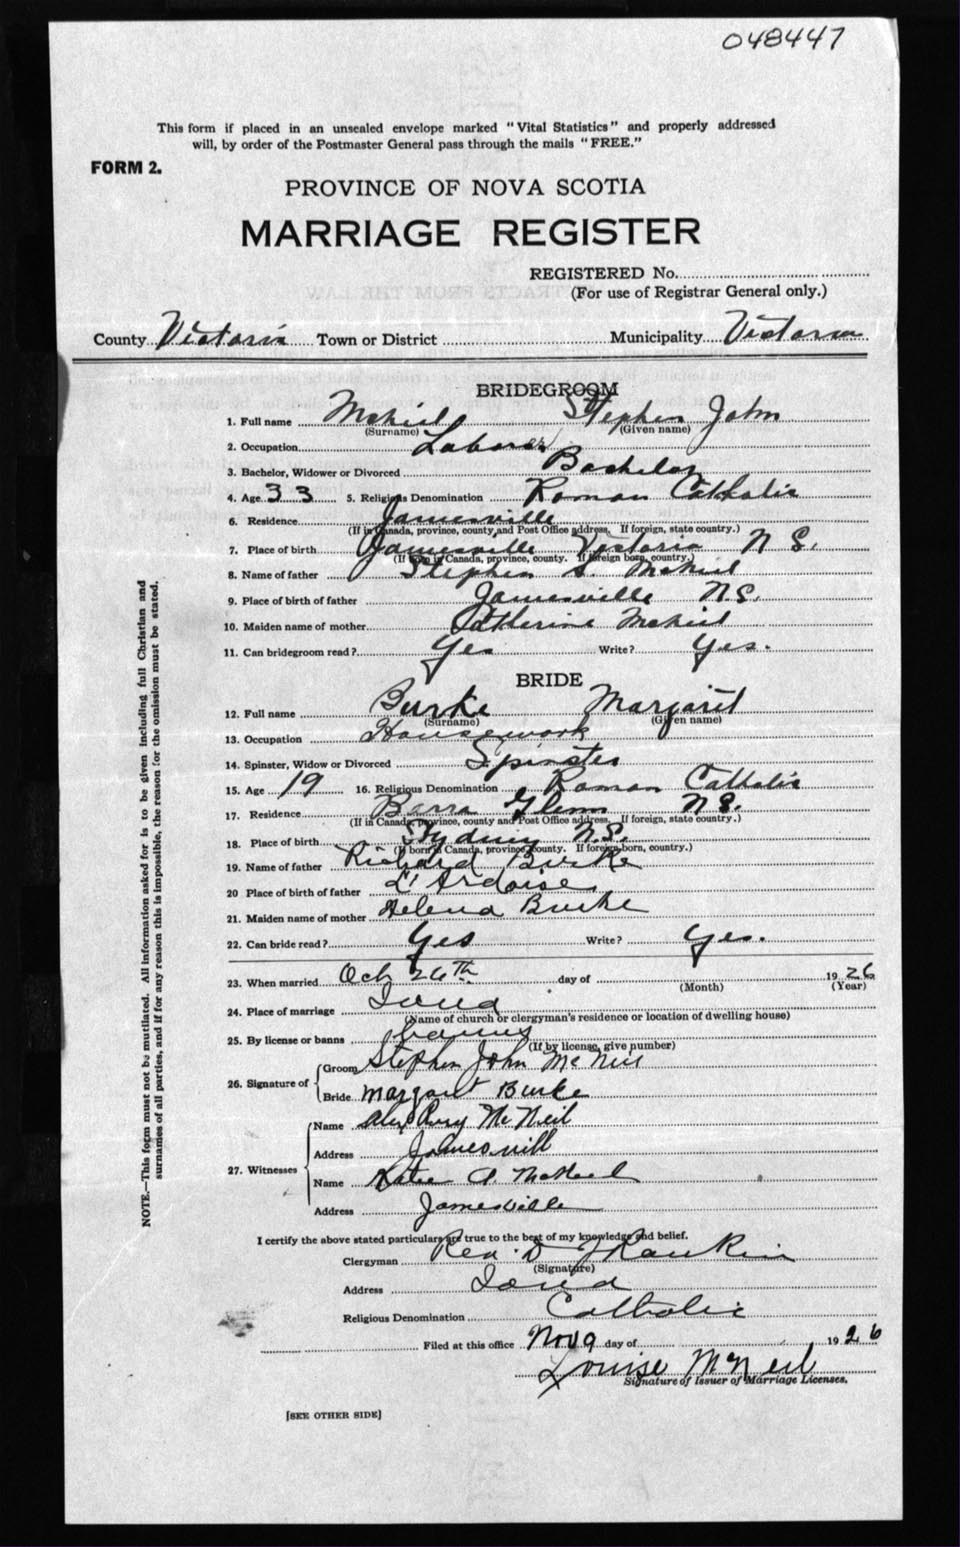 048447
This form if placed in an unsealed envelope marked "Vital Statistics" and properly addressed
will, by order of the Postmaster General pass through the mails "FREE."
FORM 2.
PROVINCE OF NOVA SCOTIA
MARRIAGE REGISTER
REGISTERED No.
(For use of Registrar General only.)
County Victoria Town or District Municipality Victoria
BRIDEGROOM
1. Full name McNeil Stephen John
(Surname) (Given name)
2. Occupation Laborer
3. Bachelor, Widower or Divorced Bachelor
4. Age 33 5. Religious Denomination Roman Catholic
6. Residence Jamesville
(If in Canada, province, county and Post Office address. If foreign, state country.)
7. Place of birth Jamesville Victoria N S.
(If born in Canada, province, county. If foreign born, country.)
8. Name of father Stephen S. McNeil
9. Place of birth of father Jamesville N.S.
10. Maiden name of mother Catherine McNeil
11. Can bridegroom read? Yes Write? Yes.
BRIDE
12. Full name Burke Margaret
(Surname) (Given name)
13. Occupation Housework
14. Spinster, Widow or Divorced Spinster
15. Age 19 16. Religious Denomination Roman Catholic
17. Residence Barra Glenn N.S.
(If in Canada, province, county and Post Office address. If foreign, state country.)
18. Place of birth Sydney N.S.
(If born in Canada, province, county. If foreign-born, country.)
19. Name of father Richard Burke
20 Place of birth of father L'Ardoise
21. Maiden name of mother Helena Burke
22. Can bride read? Yes Write? Yes.
23. When married Oct 26th day of 1926
(Month) (Year)
24. Place of marriage Iona
(Name of church or clergyman's residence or location of dwelling house)
25. By license or banns banns
(If by license, give number)
26. Signature of
Groom Stephen John McNeil
Bride Margaret Burke
27. Witnesses
Name Alex Rory McNeil
Address Jamesvill
Name Katie A. McNeil
Address Jamesville
I certify the above stated particulars are true to the best of my knowledge and belief.
Clergyman Rev. D J Rankin
(Signature)
Address Iona
Religious Denomination Catholic
Filed at this office Nov 9 day of 1926
Louise McNeil
Signature of Issuer of Marriage Licenses.
[SEE OTHER SIDE]
NOTE.—This form must not be mutilated. All information asked for is to be given including full Christian and
surnames of all parties, and if for any reason this is impossible, the reason for the omission must be stated.